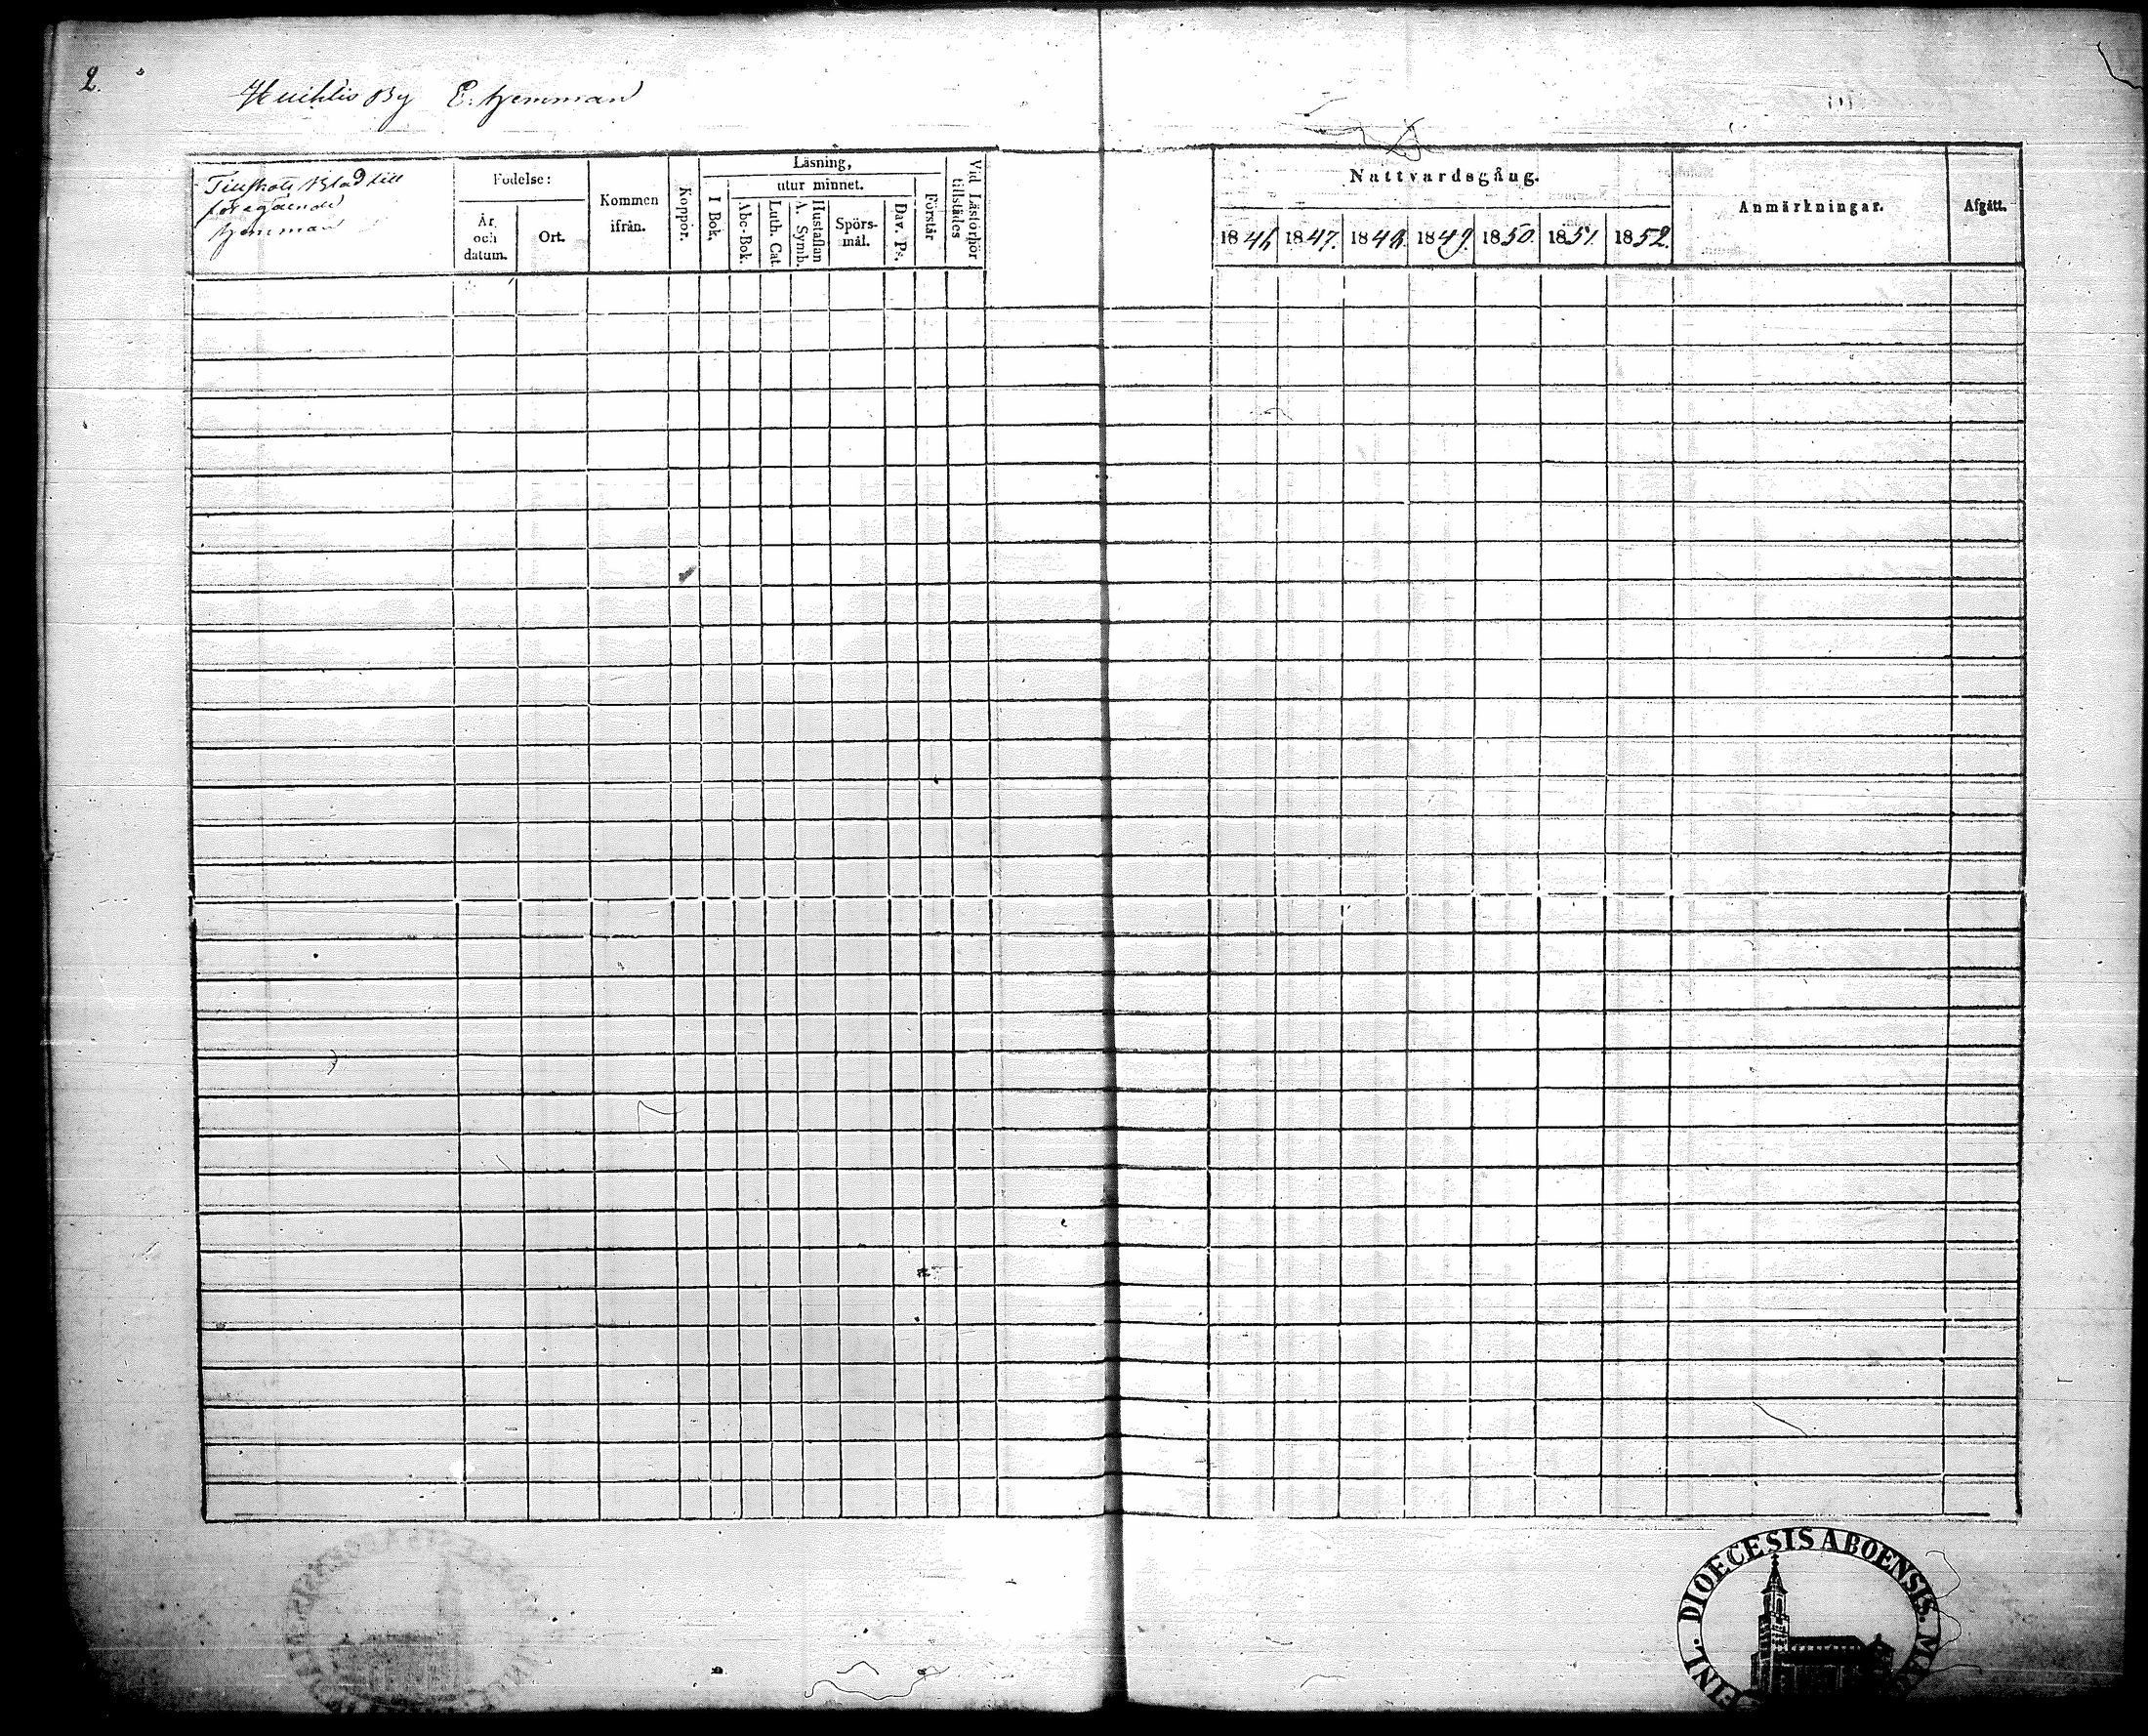 2.
By E. hemman
Blad till
föregående
hemman
Födelse:
År
och
datum.
Ort.
Kommen
ifrån.
Koppor.
Läsning,
I Bok.
utur minnet.
Abc-Bok.
Luth. Cat.
Hustaflan
A. Symb.
Spörs-
mål.
Dav. Ps.
Förstår
Vid Läsförhör
tillstädes
Nattvardsgång.
1846 1847. 1848. 1849. 1850. 1851. 1852.
Anmärkningar.
Afgått.
DIOECESIS ABOENSIS.